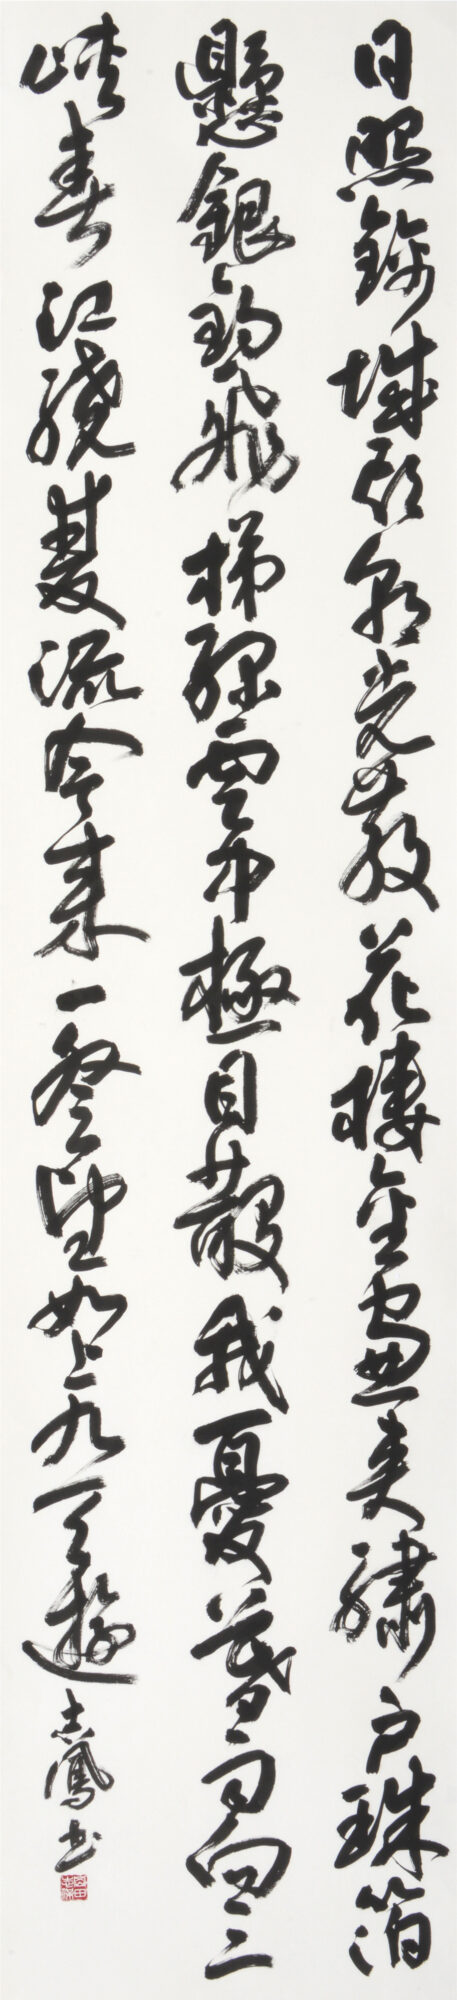 日照錦城頭朝光散花樓金窗夾繡戶珠箔
懸銀鉤飛梯綠雲中極目散我憂暮雨向三
峽春江繞雙流今來一登望如上九天遊志鳳書